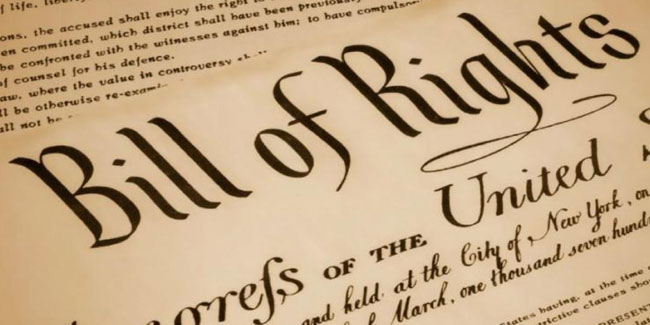 of life, liberty
ons, the accused shall enjoy the right
en committed, which district shall have been previously
be confronted with the witnesses against him; to have compulsory
of counsel for his defence.
aw, where the value in controversy
ll be otherwise re-exam
all not be
Bill of Rights
ongreſs OF THE United S
and held at the City of New York, on
March, one thousand seven hund
States having, at the time
rictive clauses sho
PRESENT